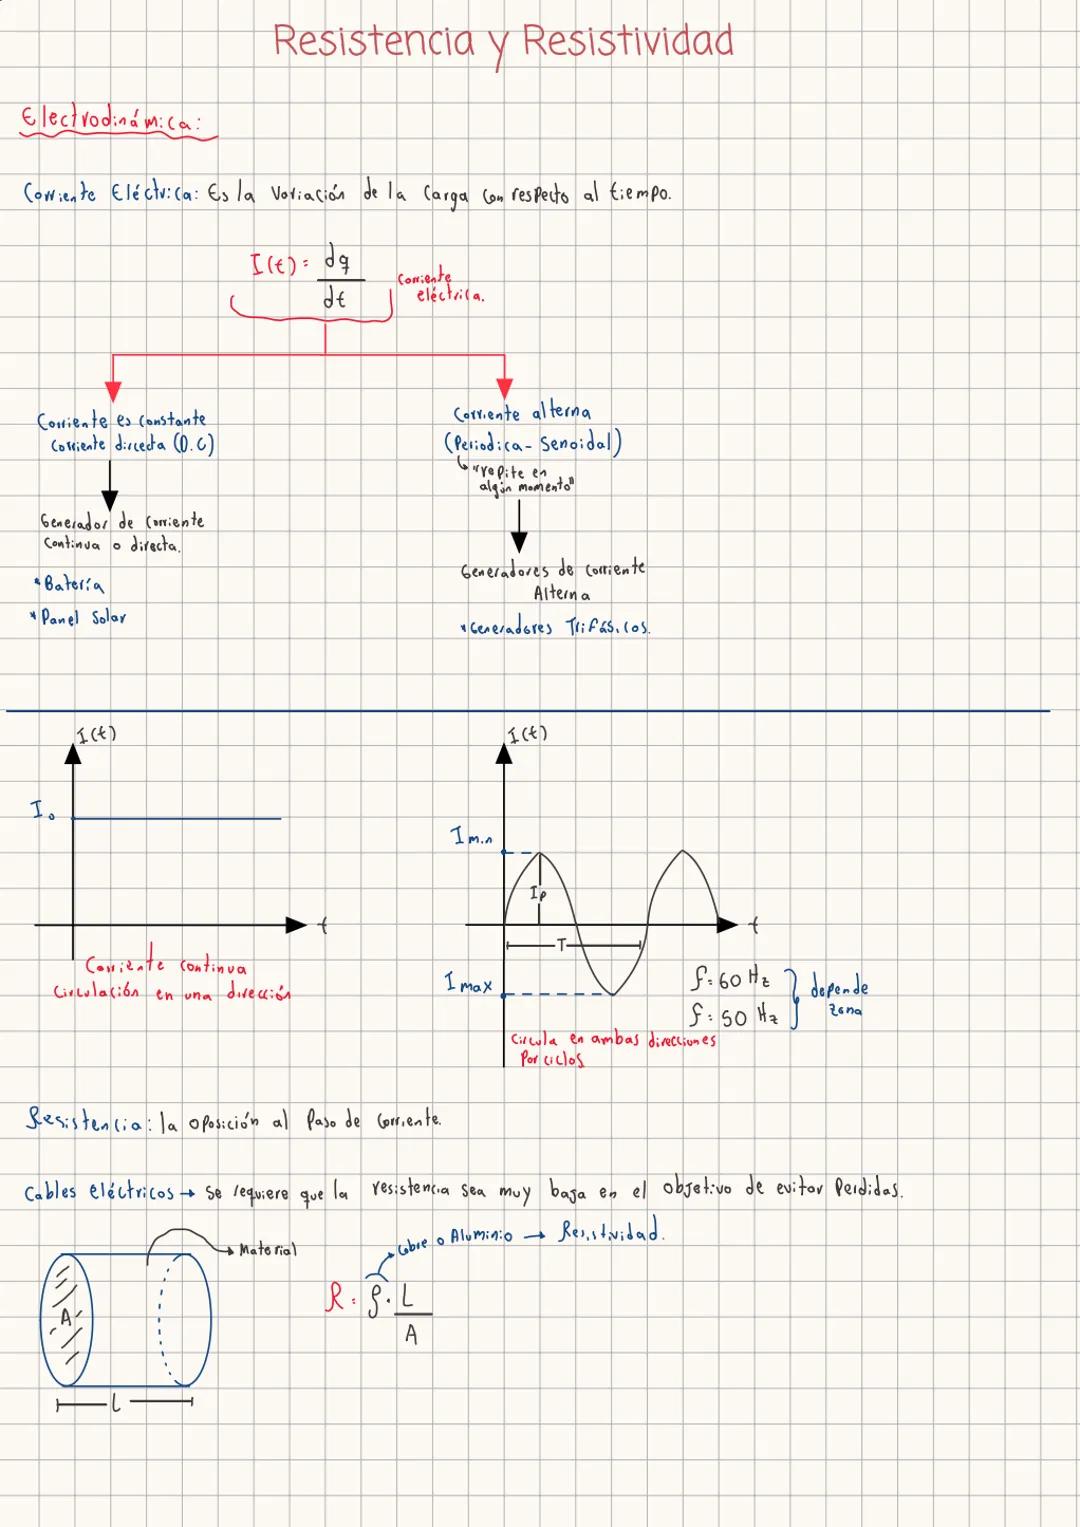 Resistencia y Resistividad
Electrodinámica:
Corriente Eléctrica: Es la Variación de la Carga con respecto al tiempo.
I(t) = dq
dt
Corriente
eléctrica.
Corriente es constante
Corriente directa (D.C)
Generador de Corriente
Continua o directa.
*Batería
*Panel Solar
Corriente alterna
(Periodica - Senoidal)
"repite en
algún momento"
Generadores de Corriente
Alterna
*Generadores Trifásicos.
I(t)
I₀
t
Corriente continua
Circulación en una dirección
I(t)
Imin
Ip
T
t
Imax
f=60 Hz
f=50 Hz
depende
zona
Circula en ambas direcciones
Por ciclos
Resistencia: la oposición al Paso de Corriente.
Cables eléctricos → Se requiere que la resistencia sea muy baja en el objetivo de evitar Perdidas.
Material
A
L
Cobre o Aluminio → Resistividad.
R = ρ · L
A